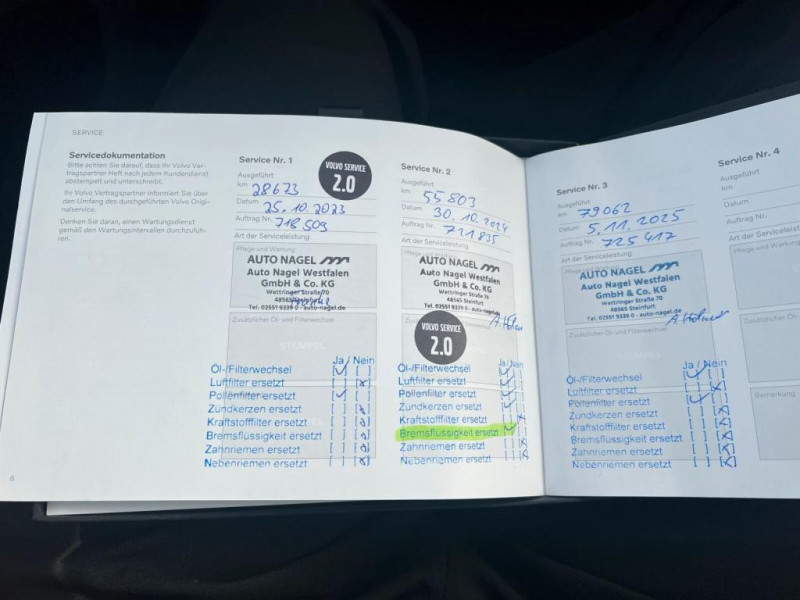 SERVICE
Servicedokumentation
Bitte achten Sie darauf, dass Ihr Volvo Ver-
tragspartner Heft nach jedem Kundendienst
abstempelt und unterschreibt.
Ihr Volvo Vertragspartner informiert Sie über
den Umfang des durchgeführten Volvo Origi-
nalservice.
Denken Sie daran, einen Wartungsdienst
gemäß den Wartungsintervallen durchzufüh-
ren.
6
Service Nr. 1
VOLVO SERVICE
2.0
Ausgeführt
km 28673
Datum 25.10.2023
Auftrag Nr. 718509
Art der Serviceleistung
Pflege und Wartung
AUTO NAGEL
Auto Nagel Westfalen
GmbH & Co. KG
Wettringer Straße 70
48565 Steinfurt
Tel. 02551 9339 0 - auto-nagel.de
Zusätzlicher Öl- und Filterwechsel
STEMPEL
Ja / Nein
Öl-/Filterwechsel [ ] [ ]
Luftfilter ersetzt [ ] [ ]
Pollenfilter ersetzt [ ] [ ]
Zündkerzen ersetzt [ ] [ ]
Kraftstofffilter ersetzt [ ] [ ]
Bremsflüssigkeit ersetzt [ ] [ ]
Zahnriemen ersetzt [ ] [ ]
Nebenriemen ersetzt [ ] [ ]
Service Nr. 2
Ausgeführt
km 55803
Datum 30.10.2024
Auftrag Nr. 721835
Art der Serviceleistung
AUTO NAGEL
Auto Nagel Westfalen
GmbH & Co. KG
Wettringer Straße 70
48565 Steinfurt
Tel. 02551 9339 0 - auto-nagel.de
VOLVO SERVICE
2.0
Ja / Nein
Öl-/Filterwechsel
Luftfilter ersetzt
Pollenfilter ersetzt
Zündkerzen ersetzt
Kraftstofffilter ersetzt
Bremsflüssigkeit ersetzt
Zahnriemen ersetzt
Nebenriemen ersetzt
Service Nr. 3
Ausgeführt
km 79062
Datum 5.11.2025
Auftrag Nr. 725417
Art der Serviceleistung
AUTO NAGEL
Auto Nagel Westfalen
GmbH & Co. KG
Wettringer Straße 70
48565 Steinfurt
Tel. 02551 9339 0 - auto-nagel.de
Zusätzlicher Öl- und Filterwechsel
Ja / Nein
Öl-/Filterwechsel
Luftfilter ersetzt
Pollenfilter ersetzt
Zündkerzen ersetzt
Kraftstofffilter ersetzt
Bremsflüssigkeit ersetzt
Zahnriemen ersetzt
Nebenriemen ersetzt
Service Nr. 4
Ausgeführt
km
Datum
Auftrag Nr.
Art der Serviceleistung
Pflege und Wartung
Zusätzlicher Öl-
Bemerkung